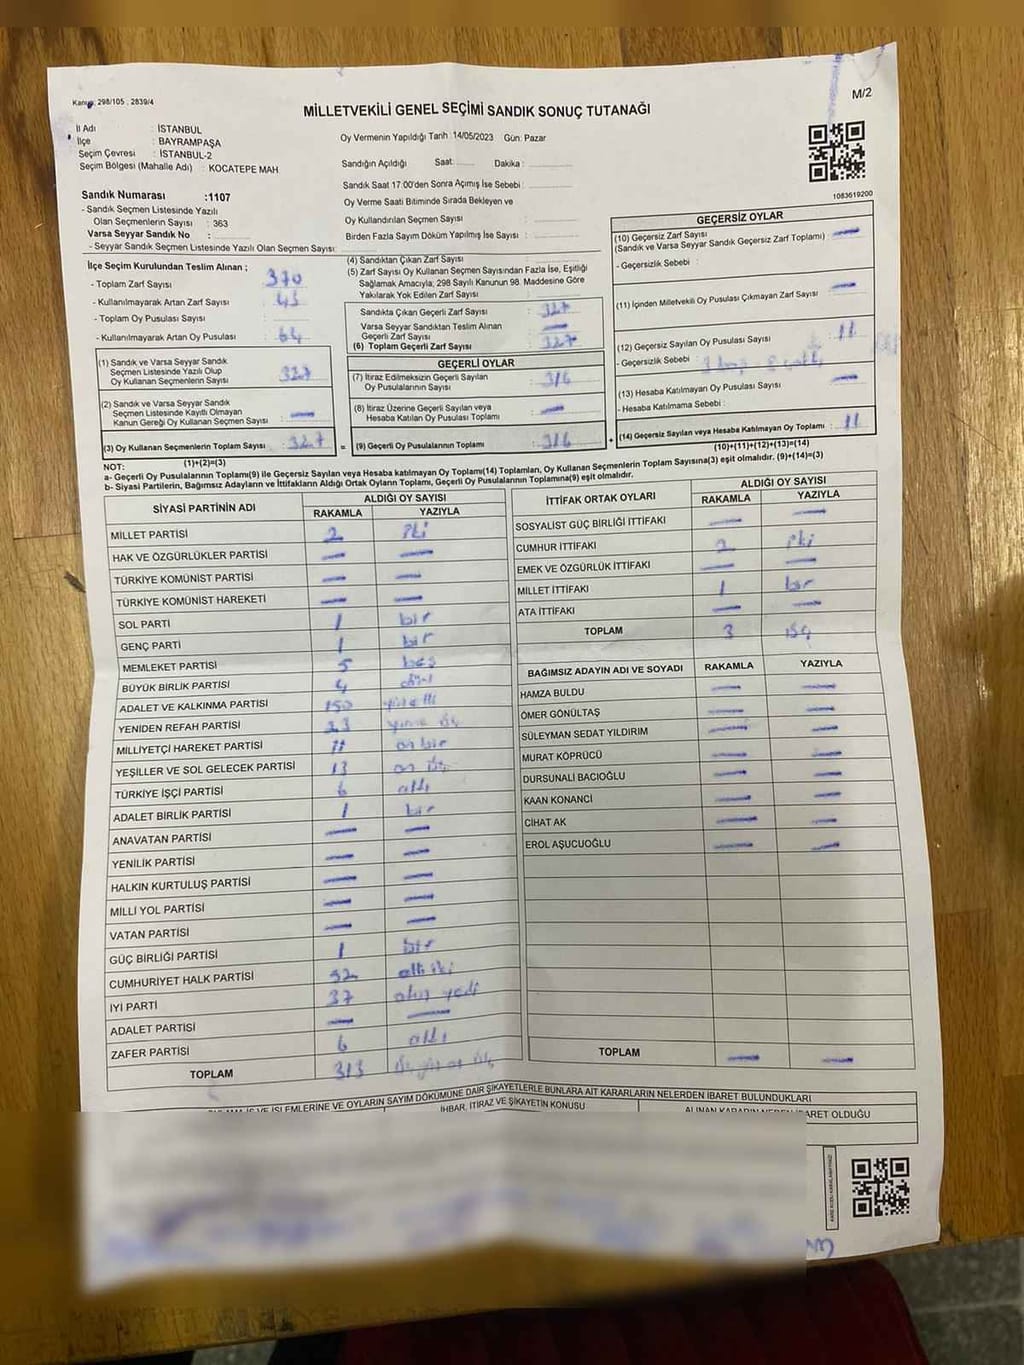 Kanun: 298/105 ; 2839/4
M/2
MİLLETVEKİLİ GENEL SEÇİMİ SANDIK SONUÇ TUTANAĞI
İl Adı : İSTANBUL
İlçe : BAYRAMPAŞA
Seçim Çevresi : İSTANBUL-2
Seçim Bölgesi (Mahalle Adı) : KOCATEPE MAH.
Oy Vermenin Yapıldığı Tarih :14/05/2023 Gün: Pazar
Sandığın Açıldığı Saat: Dakika :
Sandık Saat 17:00'den Sonra Açımış İse Sebebi :
Oy Verme Saati Bitiminde Sırada Bekleyen ve
Oy Kullandırılan Seçmen Sayısı :
Birden Fazla Sayım Döküm Yapılmış İse Sayısı :
1083619200
Sandık Numarası :1107
- Sandık Seçmen Listesinde Yazılı
Olan Seçmenlerin Sayısı : 363
Varsa Seyyar Sandık No :
- Seyyar Sandık Seçmen Listesinde Yazılı Olan Seçmen Sayısı:
İlçe Seçim Kurulundan Teslim Alınan ;
- Toplam Zarf Sayısı : 370
- Kullanılmayarak Artan Zarf Sayısı : 43
- Toplam Oy Pusulası Sayısı :
- Kullanılmayarak Artan Oy Pusulası : 64
(1) Sandık ve Varsa Seyyar Sandık
Seçmen Listesinde Yazılı Olup
Oy Kullanan Seçmenlerin Sayısı : 327
(2) Sandık ve Varsa Seyyar Sandık
Seçmen Listesinde Kayıtlı Olmayan
Kanun Gereği Oy Kullanan Seçmen Sayısı : —
(3) Oy Kullanan Seçmenlerin Toplam Sayısı : 327 =
(1)+(2)=(3)
(4) Sandıktan Çıkan Zarf Sayısı :
(5) Zarf Sayısı Oy Kullanan Seçmen Sayısından Fazla İse, Eşitliği
Sağlamak Amacıyla; 298 Sayılı Kanunun 98. Maddesine Göre
Yakılarak Yok Edilen Zarf Sayısı :
Sandıkta Çıkan Geçerli Zarf Sayısı : 327
Varsa Seyyar Sandıktan Teslim Alınan
Geçerli Zarf Sayısı : —
(6) Toplam Geçerli Zarf Sayısı : 327
GEÇERLİ OYLAR
(7) İtiraz Edilmeksizin Geçerli Sayılan
Oy Pusulalarının Sayısı : 316
(8) İtiraz Üzerine Geçerli Sayılan veya
Hesaba Katılan Oy Pusulası Toplamı : —
(9) Geçerli Oy Pusulalarının Toplamı : 316 +
GEÇERSİZ OYLAR
(10) Geçersiz Zarf Sayısı
(Sandık ve Varsa Seyyar Sandık Geçersiz Zarf Toplamı) : —
- Geçersizlik Sebebi :
(11) İçinden Milletvekili Oy Pusulası Çıkmayan Zarf Sayısı : —
(12) Geçersiz Sayılan Oy Pusulası Sayısı : 11
- Geçersizlik Sebebi
(13) Hesaba Katılmayan Oy Pusulası Sayısı : —
- Hesaba Katılmama Sebebi :
(14) Geçersiz Sayılan veya Hesaba Katılmayan Oy Toplamı : 11
(10)+(11)+(12)+(13)=(14)
NOT:
a- Geçerli Oy Pusulalarının Toplamı(9) ile Geçersiz Sayılan veya Hesaba katılmayan Oy Toplamı(14) Toplamları, Oy Kullanan Seçmenlerin Toplam Sayısına(3) eşit olmalıdır. (9)+(14)=(3)
b- Siyasi Partilerin, Bağımsız Adayların ve İttifakların Aldığı Ortak Oyların Toplamı, Geçerli Oy Pusulalarının Toplamına(9) eşit olmalıdır.
SİYASİ PARTİNİN ADI ALDIĞI OY SAYISI
RAKAMLA YAZIYLA
MİLLET PARTİSİ 2 iki
HAK VE ÖZGÜRLÜKLER PARTİSİ — —
TÜRKİYE KOMÜNİST PARTİSİ — —
TÜRKİYE KOMÜNİST HAREKETİ — —
SOL PARTİ 1 bir
GENÇ PARTİ 1 bir
MEMLEKET PARTİSİ 5 beş
BÜYÜK BİRLİK PARTİSİ 4 dört
ADALET VE KALKINMA PARTİSİ 150 yüz elli
YENİDEN REFAH PARTİSİ 23 yirmi üç
MİLLİYETÇİ HAREKET PARTİSİ 11 on bir
YEŞİLLER VE SOL GELECEK PARTİSİ 13 on üç
TÜRKİYE İŞÇİ PARTİSİ 6 altı
ADALET BİRLİK PARTİSİ 1 bir
ANAVATAN PARTİSİ — —
YENİLİK PARTİSİ — —
HALKIN KURTULUŞ PARTİSİ — —
MİLLİ YOL PARTİSİ — —
VATAN PARTİSİ — —
GÜÇ BİRLİĞİ PARTİSİ 1 bir
CUMHURİYET HALK PARTİSİ 52 elli iki
İYİ PARTİ 37 otuz yedi
ADALET PARTİSİ — —
ZAFER PARTİSİ 6 altı
TOPLAM 313 üç yüz on üç
İTTİFAK ORTAK OYLARI ALDIĞI OY SAYISI
RAKAMLA YAZIYLA
SOSYALİST GÜÇ BİRLİĞİ İTTİFAKI — —
CUMHUR İTTİFAKI 2 iki
EMEK VE ÖZGÜRLÜK İTTİFAKI — —
MİLLET İTTİFAKI 1 bir
ATA İTTİFAKI — —
TOPLAM 3 üç
BAĞIMSIZ ADAYIN ADI VE SOYADI RAKAMLA YAZIYLA
HAMZA BULDU — —
ÖMER GÖNÜLTAŞ — —
SÜLEYMAN SEDAT YILDIRIM — —
MURAT KÖPRÜCÜ — —
DURSUNALİ BACIOĞLU — —
KAAN KONANCİ — —
CİHAT AK — —
EROL AŞUCUOĞLU — —
TOPLAM — —
İŞLEMLERİNE VE OYLARIN SAYIM DÖKÜMÜNE DAİR ŞİKAYETLERLE BUNLARA AİT KARARLARIN NELERDEN İBARET BULUNDUKLARI
İHBAR, İTİRAZ VE ŞİKAYETİN KONUSU
ALINAN KARARIN NEDEN İBARET OLDUĞU